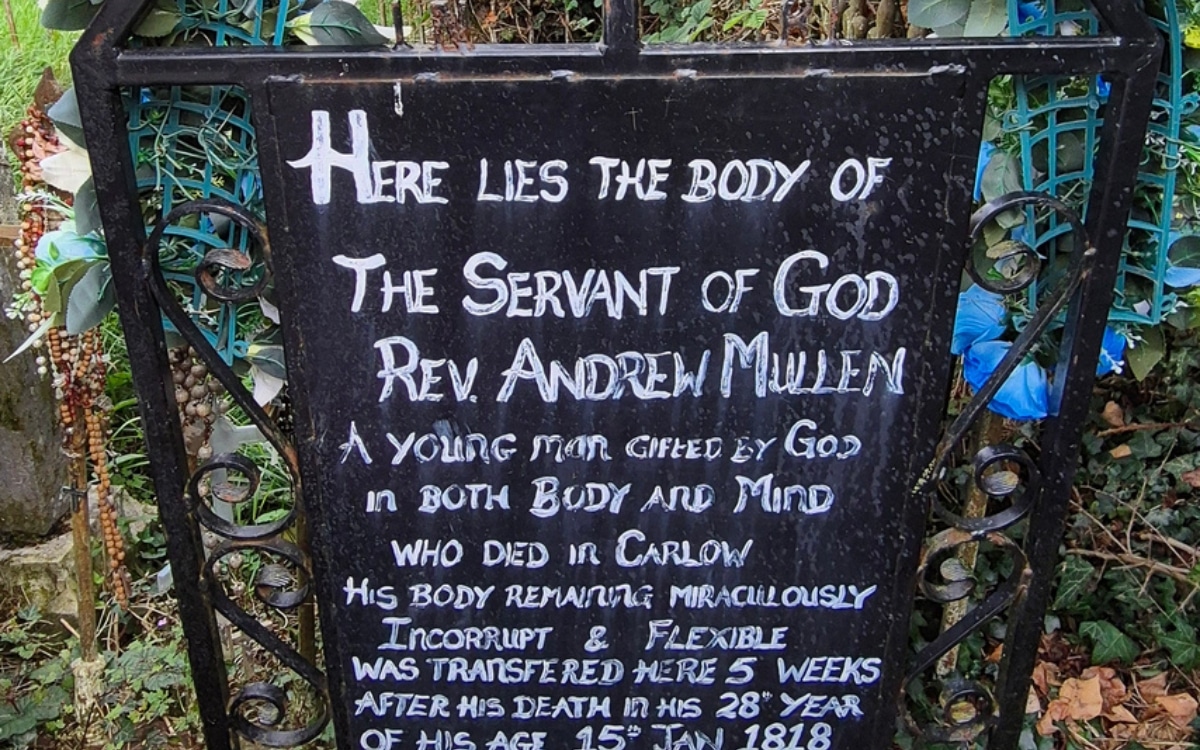 HERE LIES THE BODY OF
THE SERVANT OF GOD
REV. ANDREW MULLEN
A YOUNG MAN GIFTED BY GOD
IN BOTH BODY AND MIND
WHO DIED IN CARLOW
HIS BODY REMAINING MIRACULOUSLY
INCORRUPT & FLEXIBLE
WAS TRANSFERED HERE 5 WEEKS
AFTER HIS DEATH IN HIS 28TH YEAR
OF HIS AGE 15TH JAN 1818